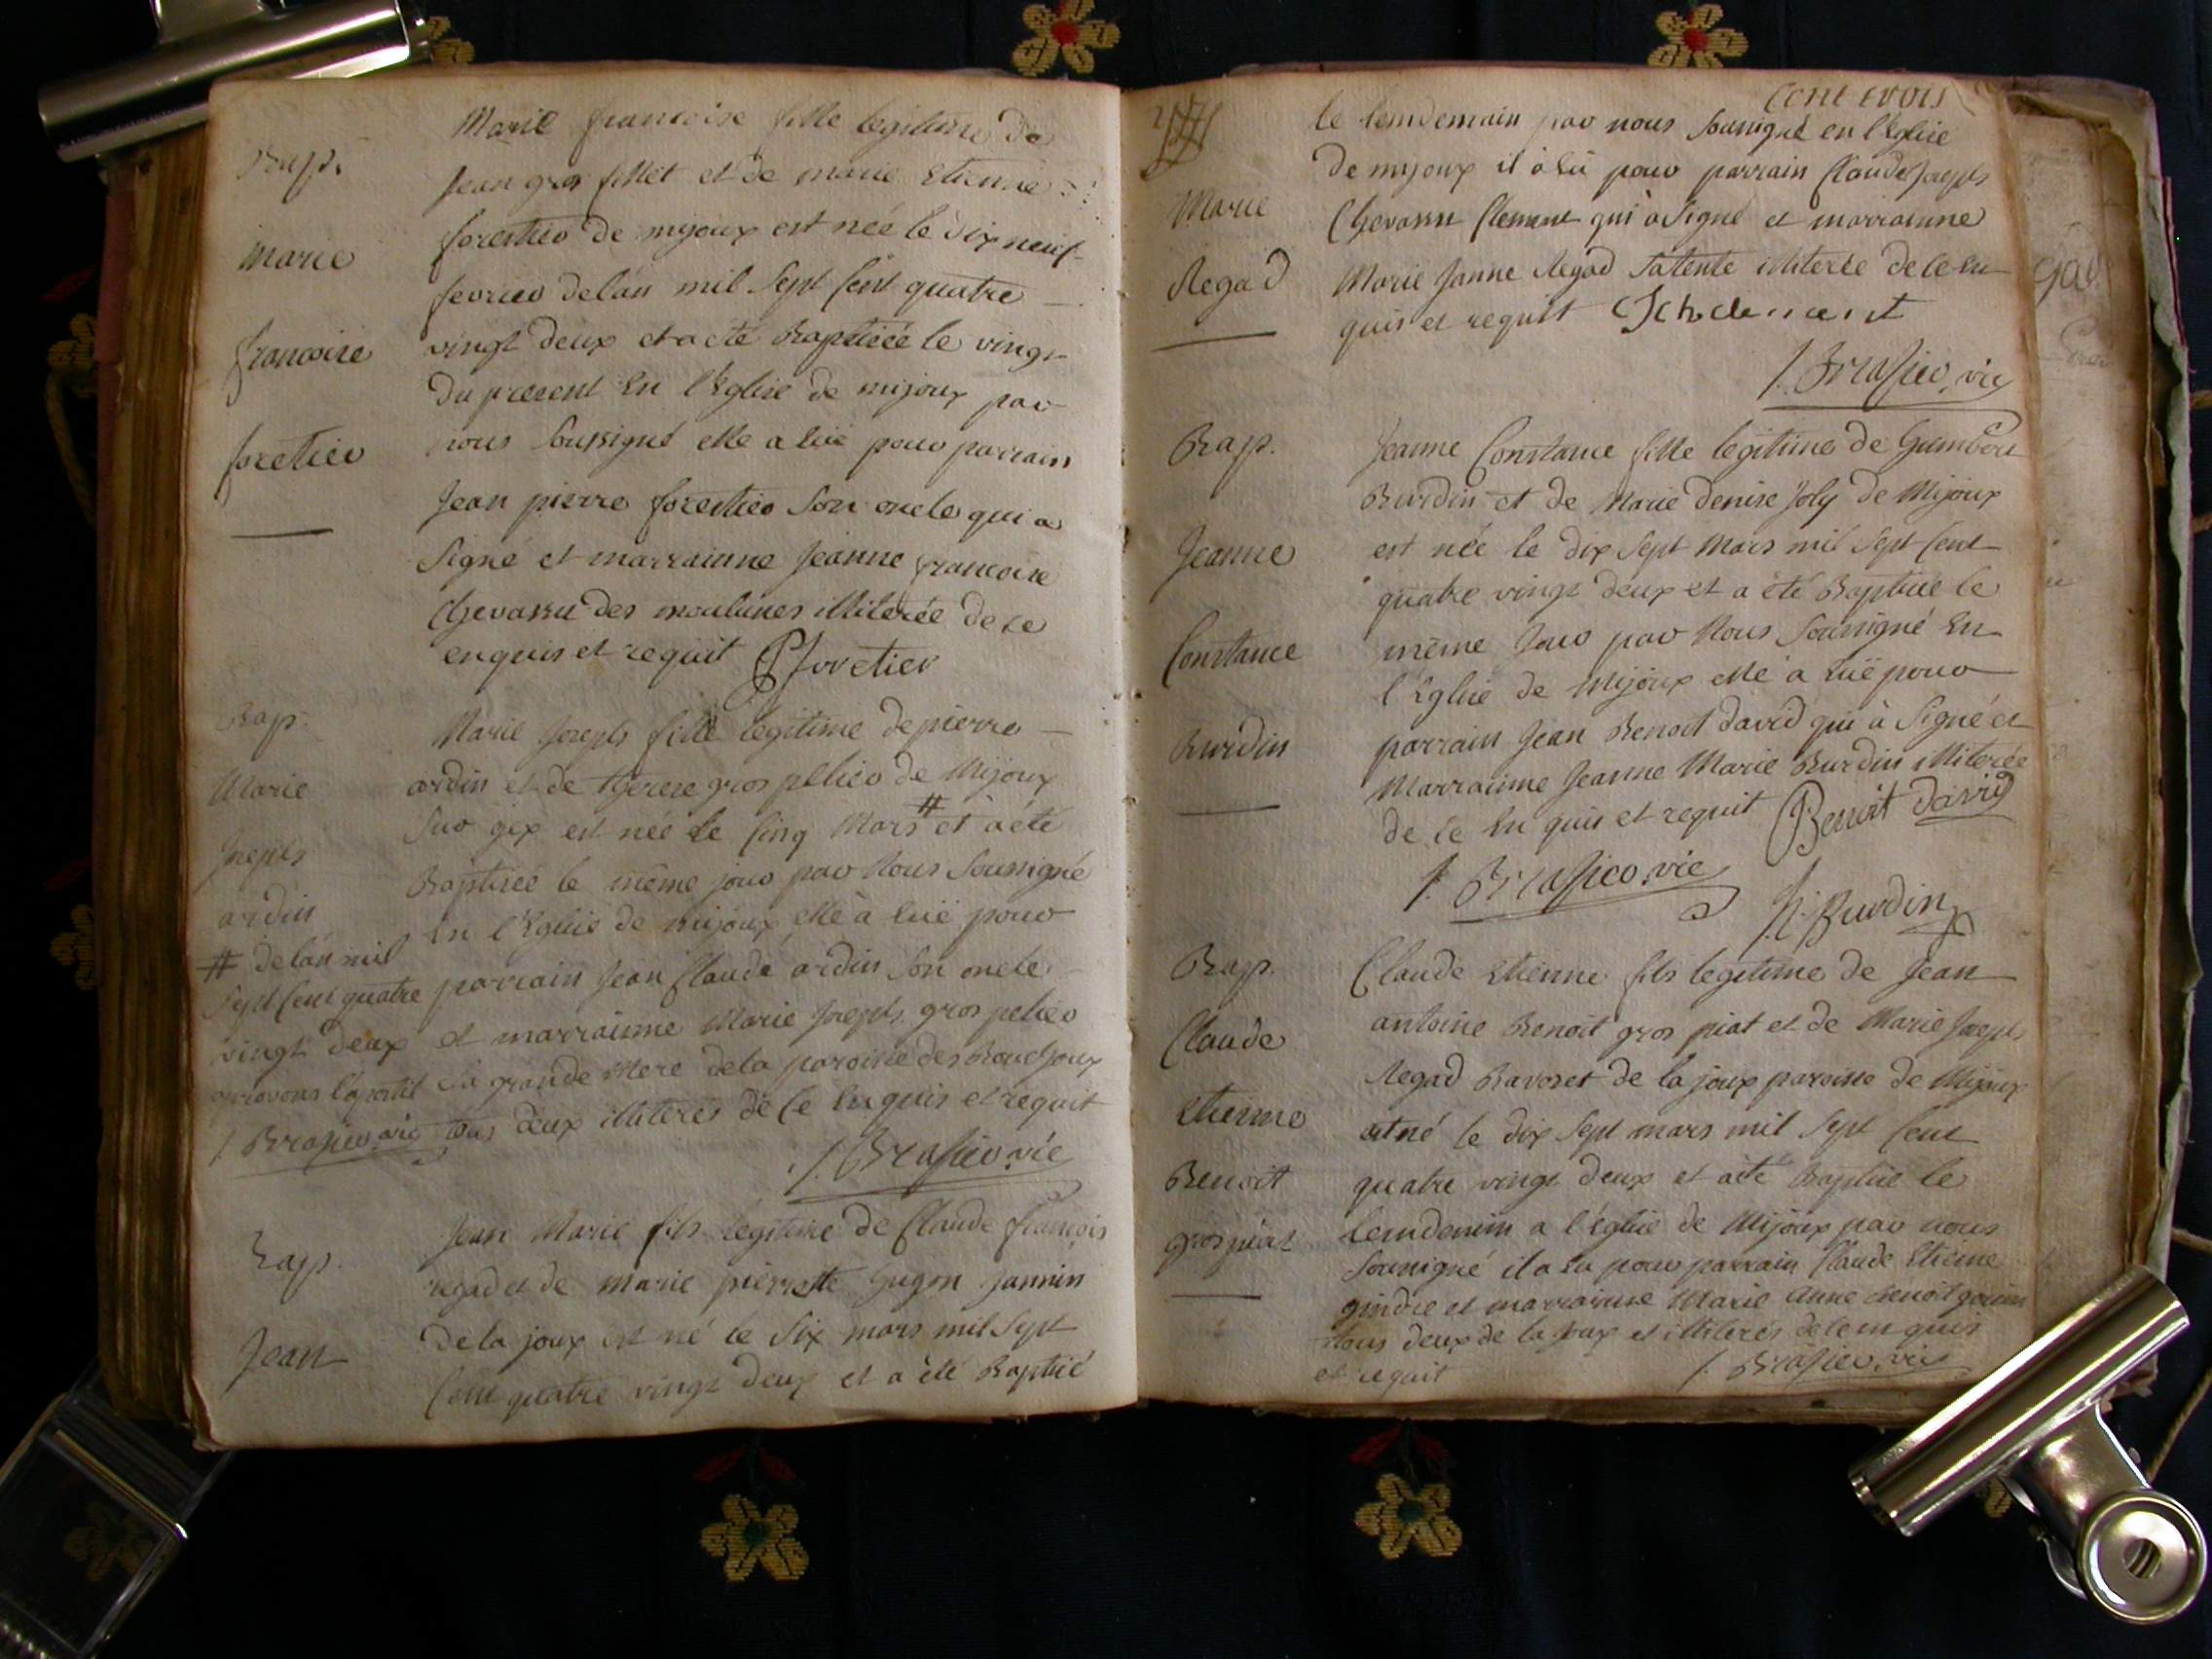 Bap.
marie
francoise
foretier
Marie francoise fille legitime de
jean gros fillet et de marie Etienne
forestier de mijoux est née le dix neuf
fevrier delan mil sept cent quatre
vingt deux et a eté Baptisée le vingt
du present en l'Eglise de mijoux par
nous soussigné elle a eüe pour parrain
Jean pierre forestier son oncle qui a
signé et marrainne jeanne francoise
Chevassu des moulunes illiterée de ce
enquis et requit JPforetier
Bap.
Marie
Joseph
ardin
# delan mil
sept cent quatre
vingt deux
aprouvons l'apostil
J. Brasier vic
Marie joseph fille legitime de pierre
ardin et de therese gros pelier de Mijoux
sur gex est née le cinq Mars # et a été
Baptisée le même jour par Nous soussigné
en l'Eglise de mijoux elle à eüe pour
parrain jean Claude ardin son oncle
et marrainne Marie Joseph gros pelier
sa grande Mere dela paroisse des Bouchoux
tous deux illiterés de ce enquis et requit
J. Brasier vic
Bap.
Jean
Jean Marie fils legitime de Claude françois
regad et de marie pierrette gugon jannin
de la joux est né le six mars mil sept
Cent quatre vingt deux et a été Baptisé
Cent trois
Marie
Regad
le lendemain par nous soussigné en l'Eglise
de mijoux il à eû pour parrain Claude joseph
Chevassu Clement qui à signé et marrainne
Marie Janne Regad satente illiterée de ce en
quis et requit
J. Brasier vic
Bap.
Jeanne
Constance
Burdin
Jeanne Constance fille legitime de Gumbert
Burdin et de Marie denise Joly de Mijoux
est née le dix sept Mars mil sept cent
quatre vingt deux et a été Baptisée le
même jour par Nous soussigné en
l'Eglise de Mijoux elle a eüe pour
parrain Jean Benoit david qui à signé et
Marrainne Jeanne Marie Burdin illiterée
de ce en quis et requit Benoit david
J. Brasier vic
Burdin
Bap.
Claude
Etienne
Benoitt
gros piat
Claude Etienne fils legitime de Jean
antoine Benoit gros piat et de Marie Joseph
Regad Bavoset de la joux paroisse de Mijoux
est né le dix sept mars mil sept cent
quatre vingt deux et a été Baptisé le
lendemin a l'église de Mijoux par nous
soussigné il a eu pour parrain Claude Etienne
gindre et marrainne Marie anne Benoit
tous deux de la joux et illiterés de ce en quis
et requit J. Brasier vic